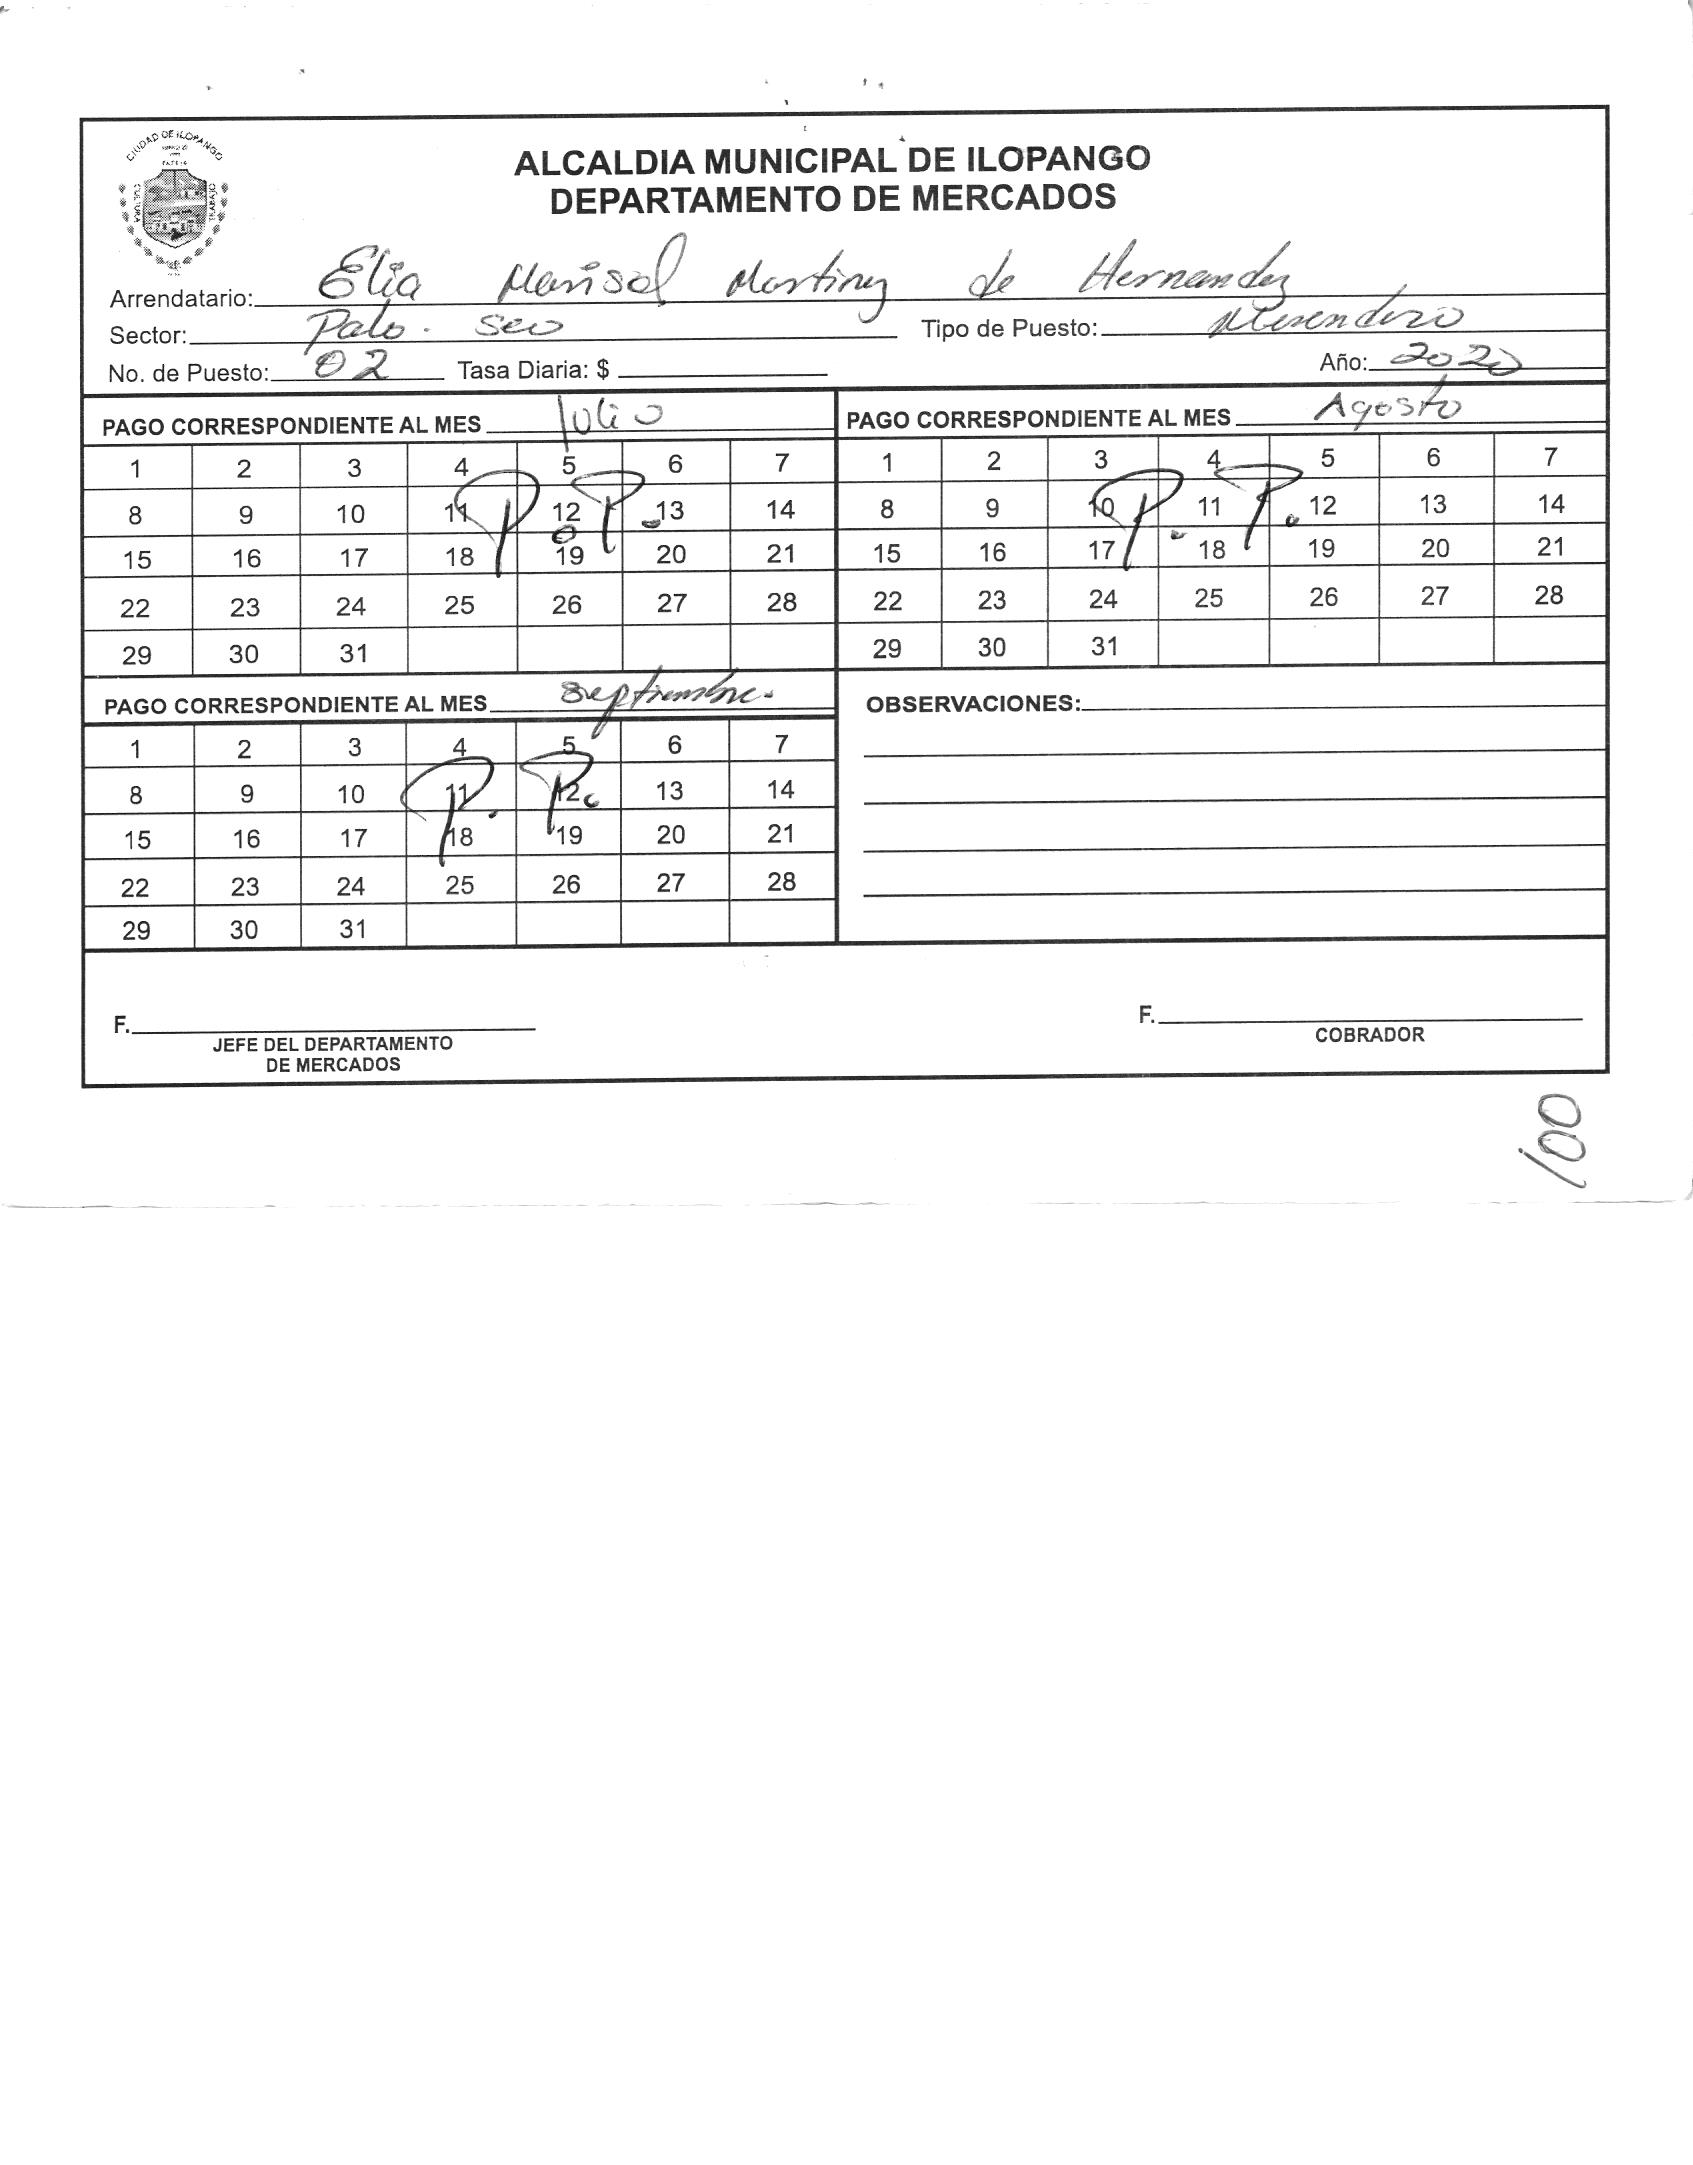 CIUDAD DE ILOPANGO
CULTURA
TRABAJO
ALCALDIA MUNICIPAL DE ILOPANGO
DEPARTAMENTO DE MERCADOS
Arrendatario: Elia Marisol Martinez de Hernandez
Sector: Palo. Seco Tipo de Puesto: Merendero
No. de Puesto: 02 Tasa Diaria: $ Año: 2020
PAGO CORRESPONDIENTE AL MES Julio
1 2 3 4 5 6 7
8 9 10 11 12 13 14
15 16 17 18 19 20 21
22 23 24 25 26 27 28
29 30 31
P. P.
PAGO CORRESPONDIENTE AL MES Agosto
1 2 3 4 5 6 7
8 9 10 11 12 13 14
15 16 17 18 19 20 21
22 23 24 25 26 27 28
29 30 31
P. P.
PAGO CORRESPONDIENTE AL MES Septiembre.
1 2 3 4 5 6 7
8 9 10 11 12 13 14
15 16 17 18 19 20 21
22 23 24 25 26 27 28
29 30 31
P. P.
OBSERVACIONES:
F.
JEFE DEL DEPARTAMENTO
DE MERCADOS
F.
COBRADOR
100